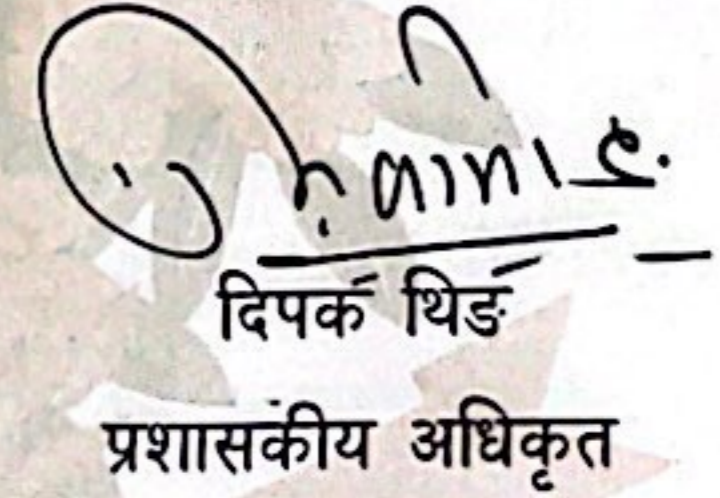 दिपक थिङ
प्रशासकीय अधिकृत